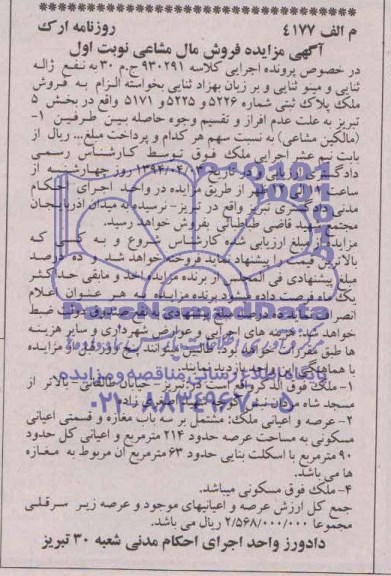 م الف ۴۱۷۷ روزنامه ارک
آگهی مزایده فروش مال مشاعی نوبت اول
در خصوص پرونده اجرایی کلاسه ۹۳۰۲۹۱ ج.م ۳۰ به نفع ژاله
ثنایی و مینو ثنایی و بر زیان بهزاد ثنایی بخواسته الزام به فروش
ملک پلاک ثبتی شماره ۵۲۲۶ و ۵۲۲۵ و ۵۱۷۱ واقع در بخش ۵
تبریز به علت عدم افراز و تقسیم وجوه حاصله بین طرفین ۱-
(مالکین مشاعی) به نسبت سهم هر کدام و پرداخت مبلغ... ریال از
بابت نیم عشر اجرایی ملک فوق توسط کارشناس رسمی
دادگستری ارزیابی و در تاریخ روز چهارشنبه از
ساعت ظهر از طریق مزایده در واحد اجرای احکام
مدنی دادگستری تبریز واقع در تبریز- نرسیده به میدان آذربایجان
مجتمع شهید قاضی طباطبائی بفروش خواهد رسید.
مزایده از مبلغ ارزیابی شده کارشناس شروع و به کسی که
بالاترین قیمت را پیشنهاد نماید فروخته خواهد شد ده درصد
مبلغ پیشنهادی فی المجلس از برنده مزایده اخذ و مابقی حداکثر
یک ماه فرصت داده میشود برنده مزایده به هر عنوان اعلام
دولت ضبط
خواهد شد هزینه های اجرایی و عوارض شهرداری و سایر هزینه
ها طبق مقررات خواهد بود. طالبین میتوانند پنج روز قبل از مزایده
با هماهنگی نمایند.
۱- ملک فوق الذکر واقع است در تبریز- خیابان طالقانی- بالاتر از
مسجد شاه مردان
۲- عرصه و اعیانی ملک: مشتمل بر سه باب مغازه و قسمتی اعیانی
مسکونی به مساحت عرصه حدود ۲۱۴ مترمربع و اعیانی کل حدود
۹۰ مترمربع با اسکلت بنایی حدود ۶۳ مترمربع آن مربوط به مغازه
ها می باشد.
۴- ملک فوق مسکونی میباشد.
جمع کل ارزش عرصه و اعیانیهای موجود و عرصه زیر سرقفلی
مجموعا ۲/۵۶۸/۰۰۰/۰۰۰ ریال می باشد.
دادورز واحد اجرای احکام مدنی شعبه ۳۰ تبریز
ParsNamadData
پایگاه اطلاع رسانی مناقصه و مزایده
۰۲۱-۸۸۳۴۹۶۷۰-۵